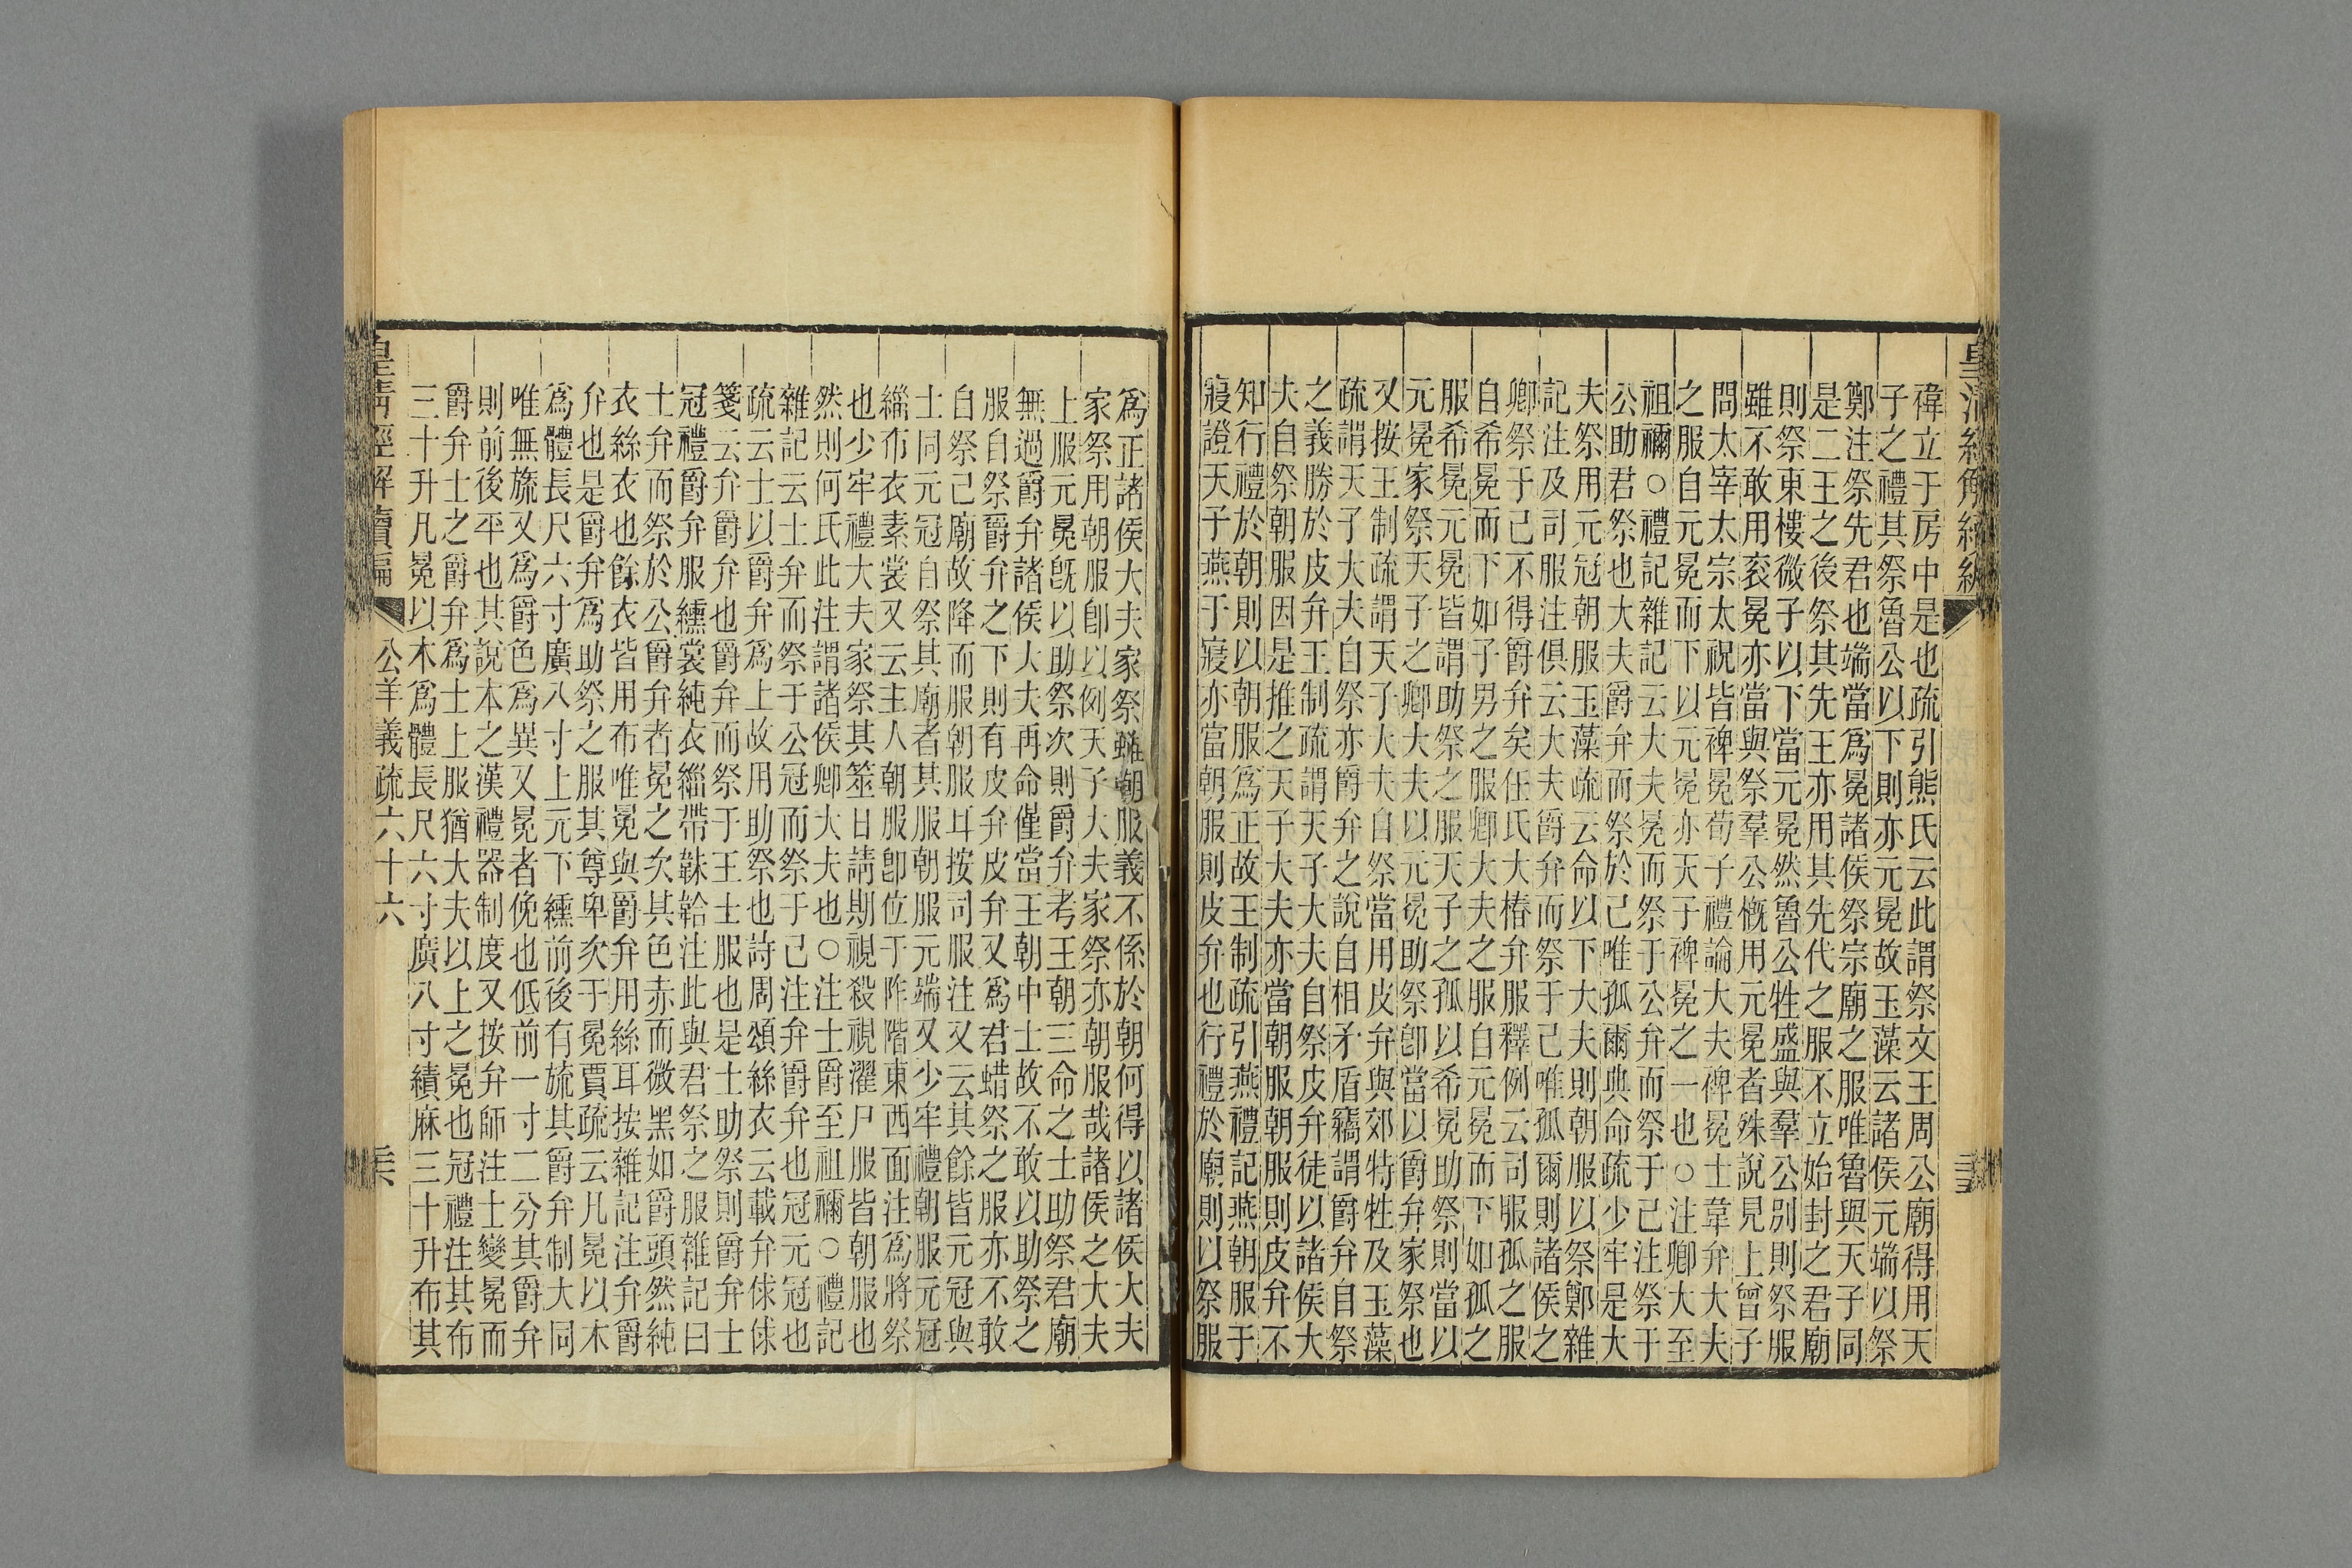 皇清經解續編
褘立于房中是也疏引熊氏云此謂祭文王周公廟得用天
子之禮其祭魯公以下則亦元冕故玉藻云諸侯元端以祭
鄭注祭先君也端當爲冕諸侯祭宗廟之服唯魯與天子同
是二王之後祭其先王亦用其先代之服不立始封之君廟
則祭東樓微子以下當元冕然魯公牲盛與羣公別則祭服
雖不敢用衮冕亦當與祭羣公慨用元冕者殊說見上曾子
問太宰太宗太祝皆裨冕荀子禮論大夫裨冕士韋弁大夫
之服自元冕而下以元冕亦天子裨冕之一也○注卿大至
祖禰○禮記雜記云大夫冕而祭于公弁而祭于己注祭于
公助君祭也大夫爵弁而祭於己唯孤爾典命疏少牢是大
夫祭用元冠朝服玉藻疏云命以下大夫則朝服以祭鄭雜
記注及司服注俱云大夫爵弁而祭于己唯孤爾則諸侯之
卿祭于己不得爵弁矣任氏大椿弁服釋例云司服孤之服
自希冕而下如子男之服卿大夫之服自元冕而下如孤之
服希冕元冕皆謂助祭之服天子之孤以希冕助祭則當以
元冕家祭天子之卿大夫以元冕助祭卽當以爵弁家祭也
又按王制疏謂天子大夫自祭當用皮弁與郊特牲及玉藻
疏謂天子大夫自祭亦爵弁之說自相矛盾竊謂爵弁自祭
之義勝於皮弁王制疏謂天子大夫自祭皮弁徒以諸侯大
夫自祭朝服因是推之天子大夫亦當朝服朝服則皮弁不
知行禮於朝則以朝服爲正故王制疏引燕禮記燕朝服于
寢證天子燕于寢亦當朝服則皮弁也行禮於廟則以祭服
爲正諸侯大夫家祭雖朝服義不係於朝何得以諸侯大夫
家祭用朝服卽以例天子大夫家祭亦朝服哉諸侯之大夫
上服元冕旣以助祭次則爵弁考王朝三命之士助祭君廟
無過爵弁諸侯大夫再命僅當王朝中士故不敢以助祭之
服自祭爵弁之下則有皮弁皮弁又爲君蜡祭之服亦不敢
自祭己廟故降而服朝服耳按司服注又云其餘皆元冠與
士同元冠自祭其廟者其服朝服元端又少牢禮朝服元冠
緇布衣素裳又云主人朝服卽位于阼階東西面注爲將祭
也少牢禮大夫家祭其筮日請期視殺視濯尸服皆朝服也
然則何氏此注謂諸侯卿大夫也○注士爵至祖禰○禮記
雜記云士弁而祭于公冠而祭于己注弁爵弁也冠元冠也
疏云士以爵弁爲上故用助祭也詩周頌絲衣云載弁俅俅
箋云弁爵弁也爵弁而祭于王士服也是士助祭則爵弁士
冠禮爵弁服纁裳純衣緇帶韎韐注此與君祭之服雜記曰
士弁而祭於公爵弁者冕之次其色赤而微黑如爵頭然純
衣絲衣也餘衣皆用布唯冕與爵弁用絲耳按雜記注弁爵
弁也是爵弁爲助祭之服其尊卑次于冕賈疏云凡冕以木
爲體長尺六寸廣八寸上元下纁前後有旒其爵弁制大同
唯無旒又爲爵色爲異又冕者俛也低前一寸二分其爵弁
則前後平也其說本之漢禮器制度又按弁師注士變冕而
爵弁士之爵弁爲士上服猶大夫以上之冕也冠禮注其布
三十升凡冕以木爲體長尺六寸廣八寸績麻三十升布其
皇清經解續編 公羊義疏六十六